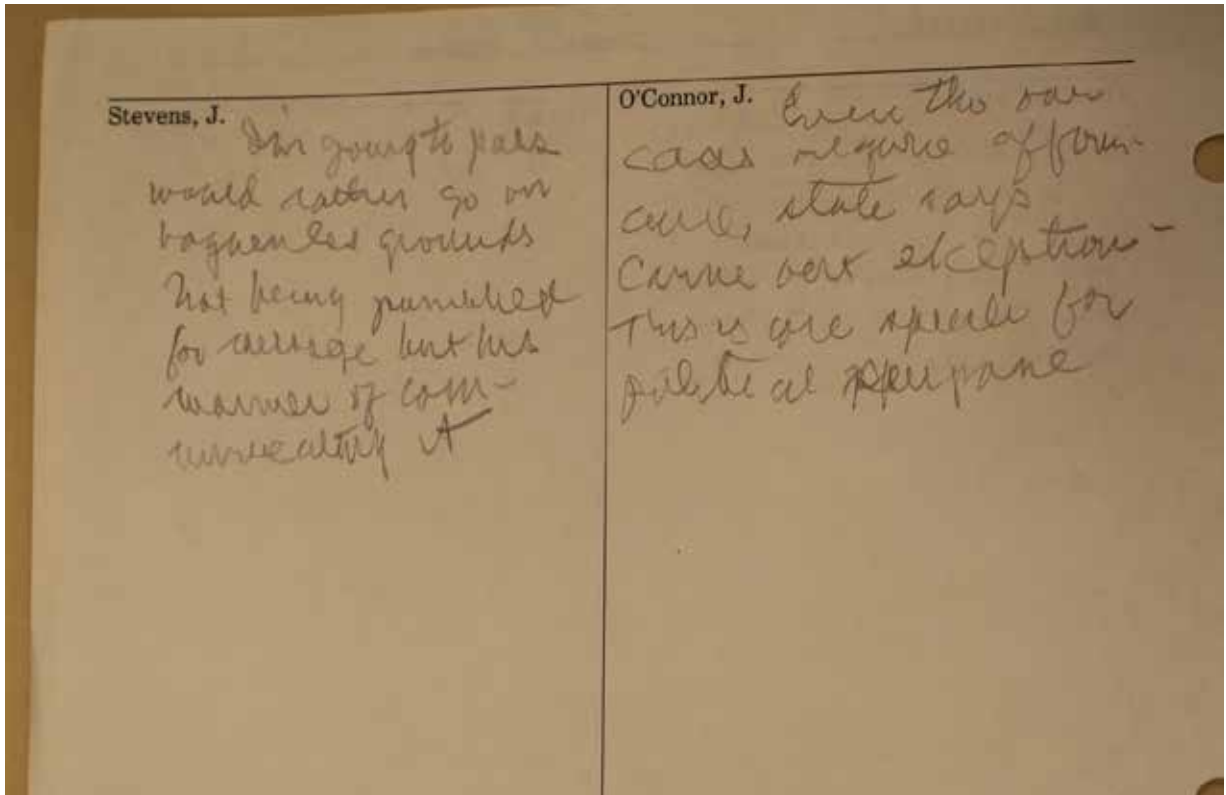 Stevens, J.
I'm going to pass
would rather go on
vagueness grounds
Not being punished
for message but his
manner of com-
municating it
O'Connor, J.
Even tho our
cases require affirm-
ance, state says
Carve out exception -
This is are speech for
political purpose